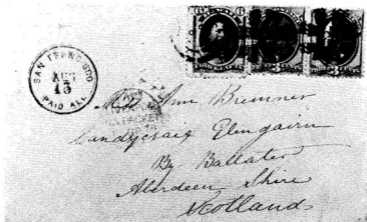 SAN FRANCISCO
AUG
13
PAID ALL
Ann Bremner
Glengairn
By Ballater
Aberdeen Shire
Scotland